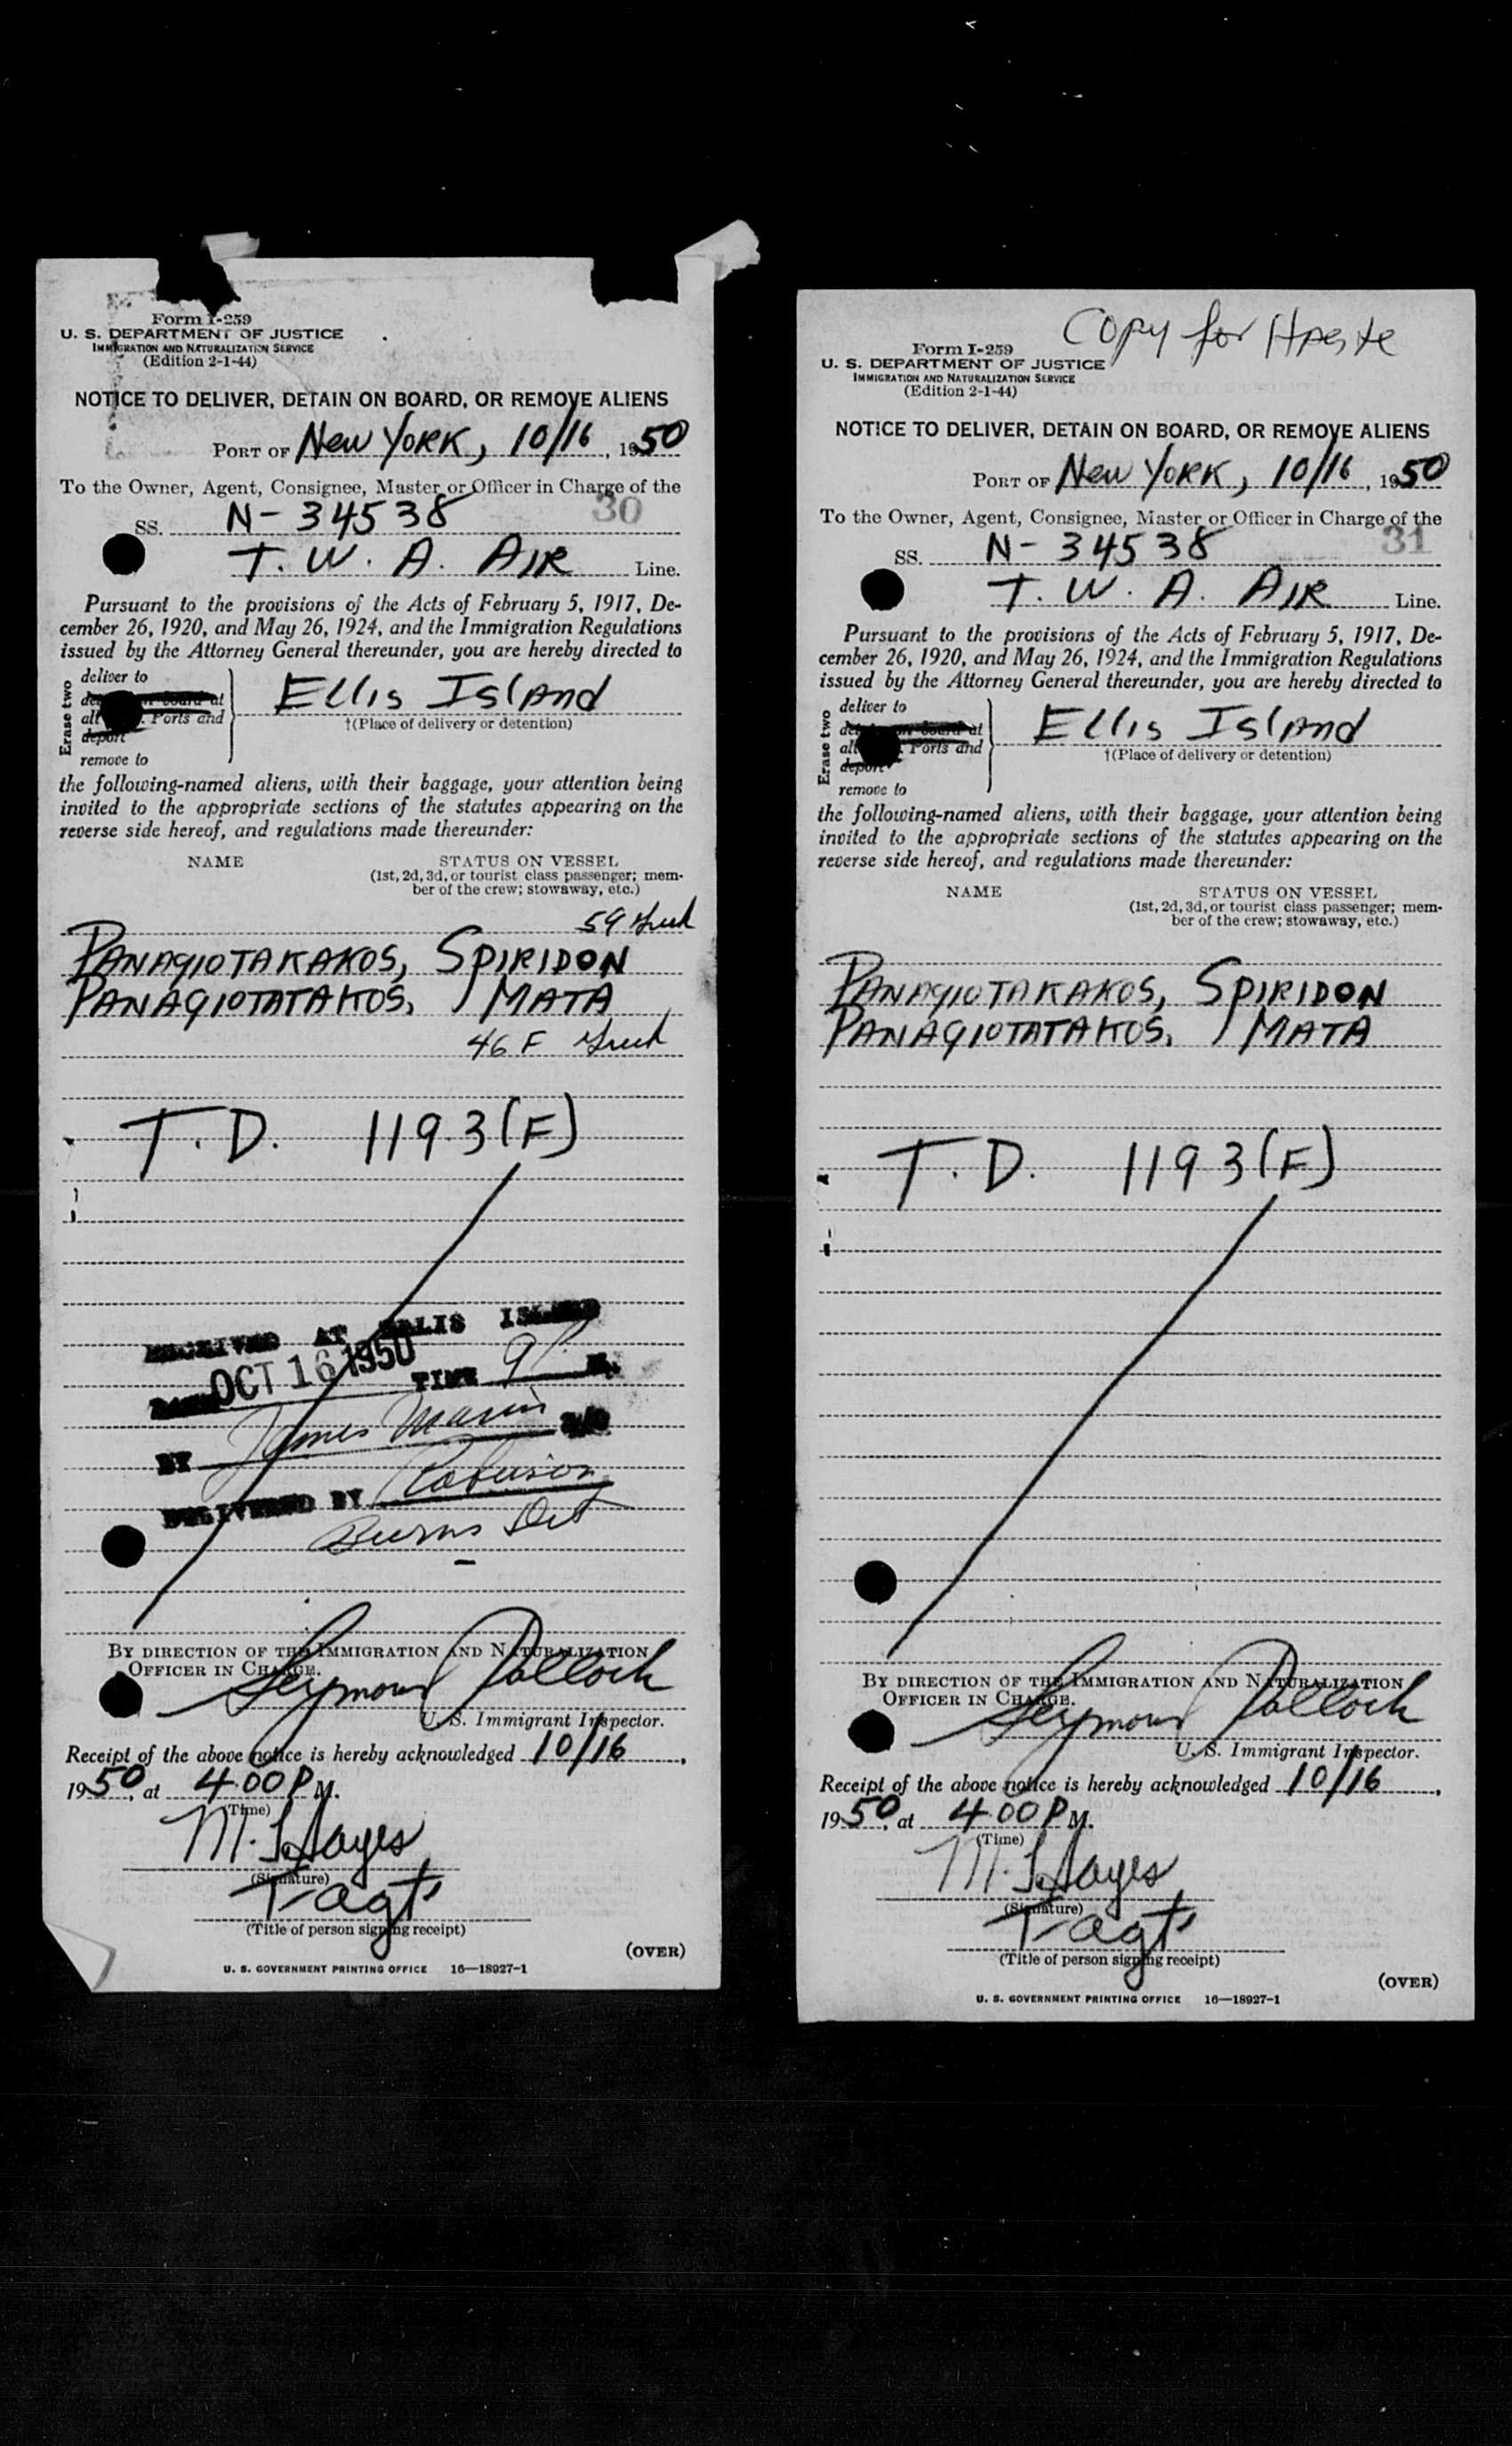 Form I-259
U. S. DEPARTMENT OF JUSTICE
IMMIGRATION AND NATURALIZATION SERVICE
(Edition 2-1-44)
NOTICE TO DELIVER, DETAIN ON BOARD, OR REMOVE ALIENS
PORT OF New York, 10/16, 1950
To the Owner, Agent, Consignee, Master or Officer in Charge of the
30
SS. N-34538
T. W. A. AIR Line.
Pursuant to the provisions of the Acts of February 5, 1917, De-
cember 26, 1920, and May 26, 1924, and the Immigration Regulations
issued by the Attorney General thereunder, you are hereby directed to
Erase two
deliver to
on board at
Ports and
deport
remove to
Ellis Island
†(Place of delivery or detention)
the following-named aliens, with their baggage, your attention being
invited to the appropriate sections of the statutes appearing on the
reverse side hereof, and regulations made thereunder:
NAME STATUS ON VESSEL
(1st, 2d, 3d, or tourist class passenger; mem-
ber of the crew; stowaway, etc.)
59 Greek
PANAGIOTAKAKOS, SPIRIDON
PANAGIOTATAKOS, MATA
46 F Greek
T.D. 1193(F)
RECEIVED AT ELLIS ISLAND
DATE OCT 16 1950 TIME 9 P. M.
BY James
DELIVERED BY Robinson
Burns Det
BY DIRECTION OF THE IMMIGRATION AND NATURALIZATION
OFFICER IN CHARGE.
Seymour Pollock
U. S. Immigrant Inspector.
Receipt of the above notice is hereby acknowledged 10/16,
1950, at 4:00 P M.
(Time)
M. Hayes
(Signature)
T-agt
(Title of person signing receipt)
(OVER)
U. S. GOVERNMENT PRINTING OFFICE 16—18927-1
Copy for
Form I-259
U. S. DEPARTMENT OF JUSTICE
IMMIGRATION AND NATURALIZATION SERVICE
(Edition 2-1-44)
NOTICE TO DELIVER, DETAIN ON BOARD, OR REMOVE ALIENS
PORT OF New York, 10/16, 1950
To the Owner, Agent, Consignee, Master or Officer in Charge of the
31
SS. N-34538
T. W. A. AIR Line.
Pursuant to the provisions of the Acts of February 5, 1917, De-
cember 26, 1920, and May 26, 1924, and the Immigration Regulations
issued by the Attorney General thereunder, you are hereby directed to
Erase two
deliver to
on board at
Ports and
deport
remove to
Ellis Island
†(Place of delivery or detention)
the following-named aliens, with their baggage, your attention being
invited to the appropriate sections of the statutes appearing on the
reverse side hereof, and regulations made thereunder:
NAME STATUS ON VESSEL
(1st, 2d, 3d, or tourist class passenger; mem-
ber of the crew; stowaway, etc.)
PANAGIOTAKAKOS, SPIRIDON
PANAGIOTATAKOS, MATA
T.D. 1193(F)
BY DIRECTION OF THE IMMIGRATION AND NATURALIZATION
OFFICER IN CHARGE.
Seymour Pollock
U. S. Immigrant Inspector.
Receipt of the above notice is hereby acknowledged 10/16,
1950, at 4:00 P M.
(Time)
M. Hayes
(Signature)
T-agt
(Title of person signing receipt)
(OVER)
U. S. GOVERNMENT PRINTING OFFICE 16—18927-1